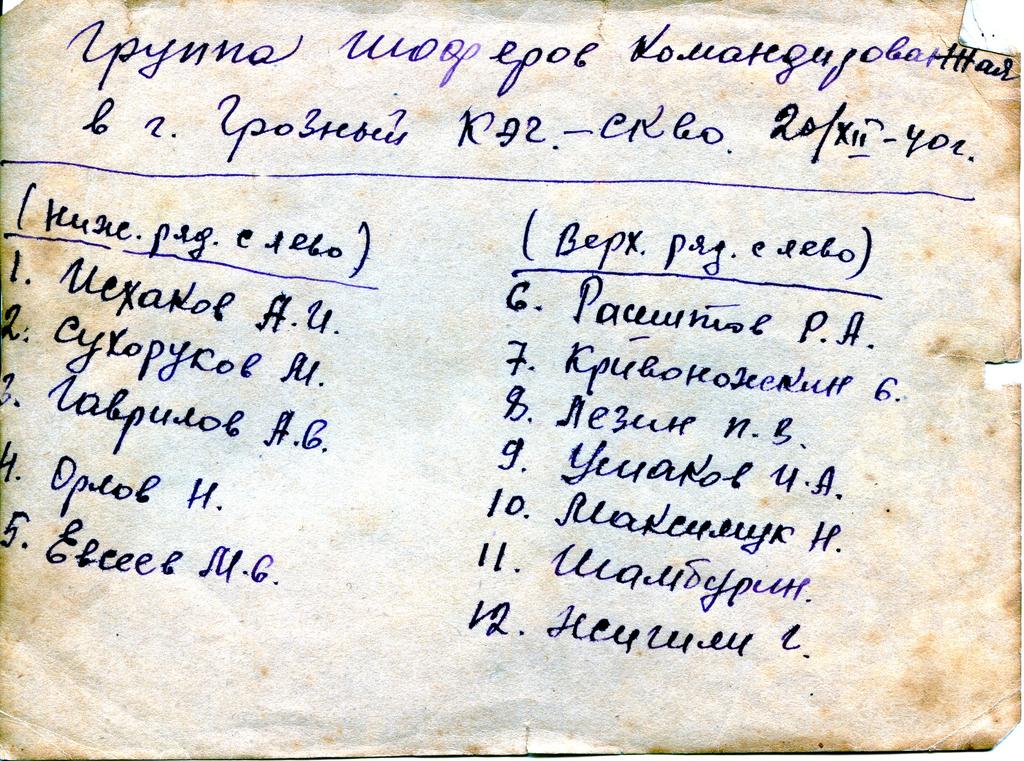 Группа шоферов командированная
в г. Грозный КЭЧ.-СКВО. 20/XII-40г.
(Ниж. ряд. с лево)
1. Исхаков А.И.
2. Сухоруков М.
3. Гаврилов А.В.
4. Орлов Н.
5. Евсеев М.В.
(Верх. ряд. с лево)
6. Р.А.
7. Кривоножкин В.
8. Лезин П.В.
9. Ушаков И.А.
10. Максимук Н.
11. Шамбурин.
12. Г.